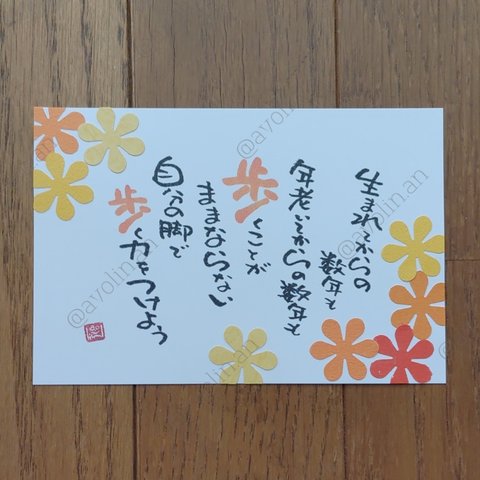 生まれてからの
数年と
年老いてからの数年と
歩くことが
ままならない
自分の脚で
歩く力をつけよう
@ayolin.an
@ayolin.an
@ayolin.an
@ayolin.an
@ayolin.an
@ayolin.an
@ayolin.an